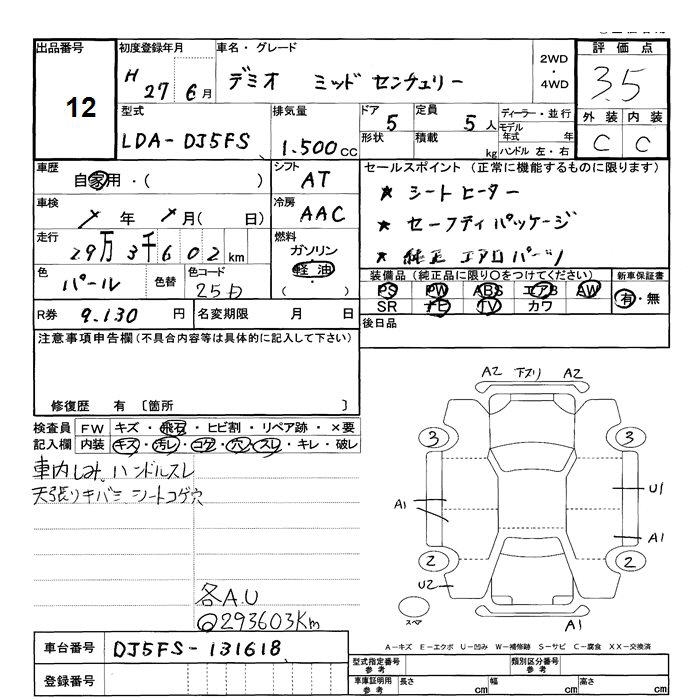 出品番号
12
初度登録年月
H 27 6月
車名・グレード
デミオ ミッドセンチュリー
2WD
・
4WD
評価点
3.5
型式
LDA-DJ5FS
排気量
1.500cc
ドア
5
定員
5人
形状
積載
kg
ディーラー・並行
モデル年式 年
ハンドル 左・右
外装 内装
C C
車歴
自家用・( )
シフト
AT
車検
年 月( 日)
冷房
AAC
走行
29万3千602km
燃料
ガソリン
軽油
( )
色
パール
色替
色コード
25D
R券 9.130 円
名変期限 月 日
セールスポイント(正常に機能するものに限ります)
★ シートヒーター
★ セーフティパッケージ
★ 純正エアロパーツ
装備品(純正品に限り○をつけてください)
PS PW ABS エアB AW
SR ナビ TV カワ
新車保証書
有・無
後日品
注意事項申告欄(不具合内容等は具体的に記入して下さい)
修復歴 有〔箇所 〕
検査員記入欄
FW キズ・飛石・ヒビ割・リペア跡・×要
内装 キズ・汚レ・コゲ・穴・スレ・キレ・破レ
車内しみ、ハンドルスレ
天張りキバミ シートコゲ穴
各A.U
@293603Km
A2 下スリ A2
3 3
A1
U1
A1
2 2
U2
スペア
A1
A−キズ E−エクボ U−凹み W−補修跡 S−サビ C−腐食 XX−交換済
車台番号 DJ5FS-131618
登録番号
型式指定番号 参考
類別区分番号 参考
車庫証明用 参考
長さ cm 幅 cm 高さ cm